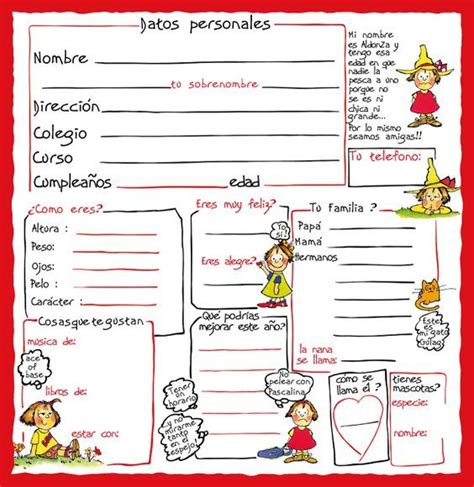 Datos personales
Nombre
tu sobrenombre
Dirección
Colegio
Curso
Cumpleaños edad
Mi nombre
es Aldonza y
tengo esa
edad en que
nadie la
pesca a uno
porque no
se es ni
chica ni
grande...
Por lo mismo
seamos amigas!!
Tu telefono:
¿Como eres?
Altura :
Peso:
Ojos:
Pelo :
Carácter :
Eres muy feliz?
Yo
sí!
Eres alegre?
Tu Familia ?
Papá
Mamá
Hermanos
la nana
se llama:
Este
es
mi gato
Gulag!
Cosas que te gustan
música de:
ace
of
base
libros de:
estar con:
Qué podrías
mejorar este año?
Tener
un
horario
...y no
mirarme
tanto
en el
espejo
No
pelear con
Pascalina
como se
llama el ?
tienes
mascotas?
especie:
nombre: